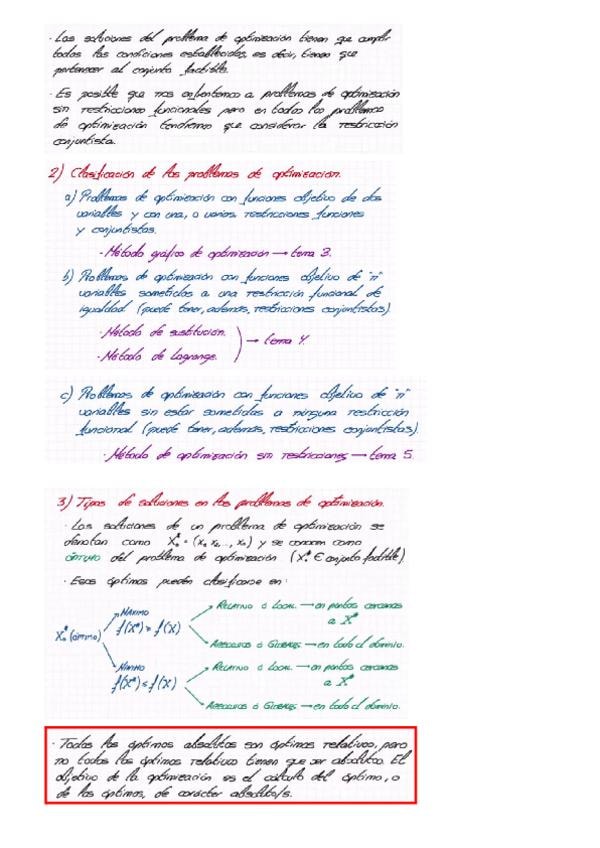 · Las soluciones del problema de optimización tienen que cumplir
todas las condiciones establecidas, es decir, tienen que
pertenecer al conjunto factible.
· Es posible que nos enfrentemos a problemas de optimización
sin restricciones funcionales pero en todos los problemas
de optimización tendremos que considerar la restricción
conjuntista.
2) Clasificación de los problemas de optimización.
a) Problemas de optimización con funciones objetivo de dos
variables y con una, o varias restricciones funciones
y conjuntistas.
· Método gráfico de optimización → tema 3.
b) Problemas de optimización con funciones objetivo de "n"
variables sometidas a una restricción funcional de
igualdad (puede tener, además, restricciones conjuntistas).
· Método de sustitución.
· Método de Lagrange.
→ tema 4.
c) Problemas de optimización con funciones objetivo de "n"
variables sin estar sometidas a ninguna restricción
funcional (puede tener, además, restricciones conjuntistas).
· Método de optimización sin restricciones → tema 5.
3) Tipos de soluciones en los problemas de optimización.
· Las soluciones de un problema de optimización se
denotan como y se conocen como
óptimo del problema de optimización (X* ∈ conjunto factible)
· Esos óptimos pueden clasificarse en:
X* (óptimo)
MÁXIMO
f(X*) ≥ f(X)
RELATIVO ó LOCAL → en puntos cercanos
a X*
ABSOLUTOS ó GLOBALES → en todo el dominio.
MÍNIMO
f(X*) ≤ f(X)
RELATIVO ó LOCAL → en puntos cercanos
a X*
ABSOLUTOS ó GLOBALES → en todo el dominio.
· Todos los óptimos absolutos son óptimos relativos, pero
no todos los óptimos relativos tienen que ser absolutos. El
objetivo de la optimización es el cálculo del óptimo, o
de los óptimos, de carácter absoluto/s.